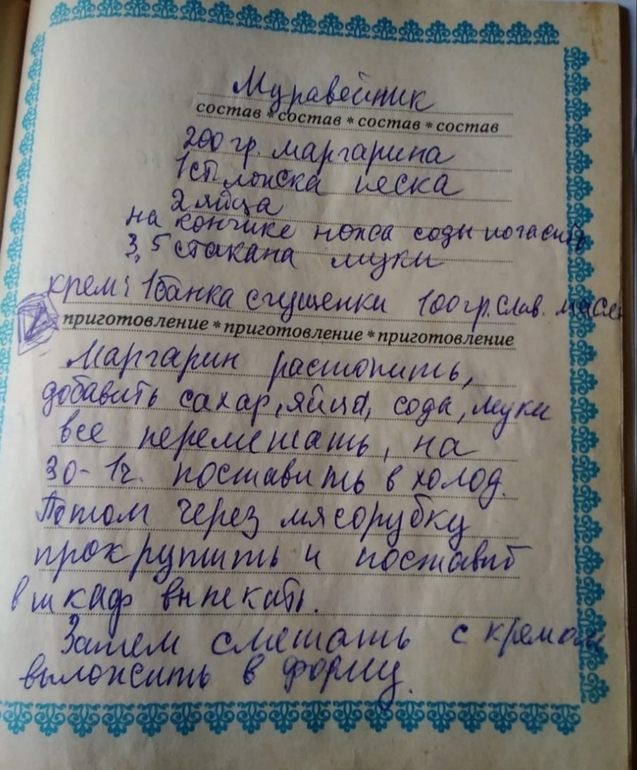 Муравейник
состав * состав * состав * состав
200 гр. маргарина
1 ст ложка песка
2 яйца
на кончике ножа соды погасить
3,5 стакана муки
крем: 1 банка сгущенки 100 гр. слив. масл
приготовление * приготовление * приготовление
Маргарин растопить,
добавить сахар, яйца, соды, муки
все перемешать, на
30 - 1 ч. поставить в холод.
Потом через мясорубку
прокрутить и поставит
в шкаф выпекать.
Затем смешать с кремом
выложить в форму.